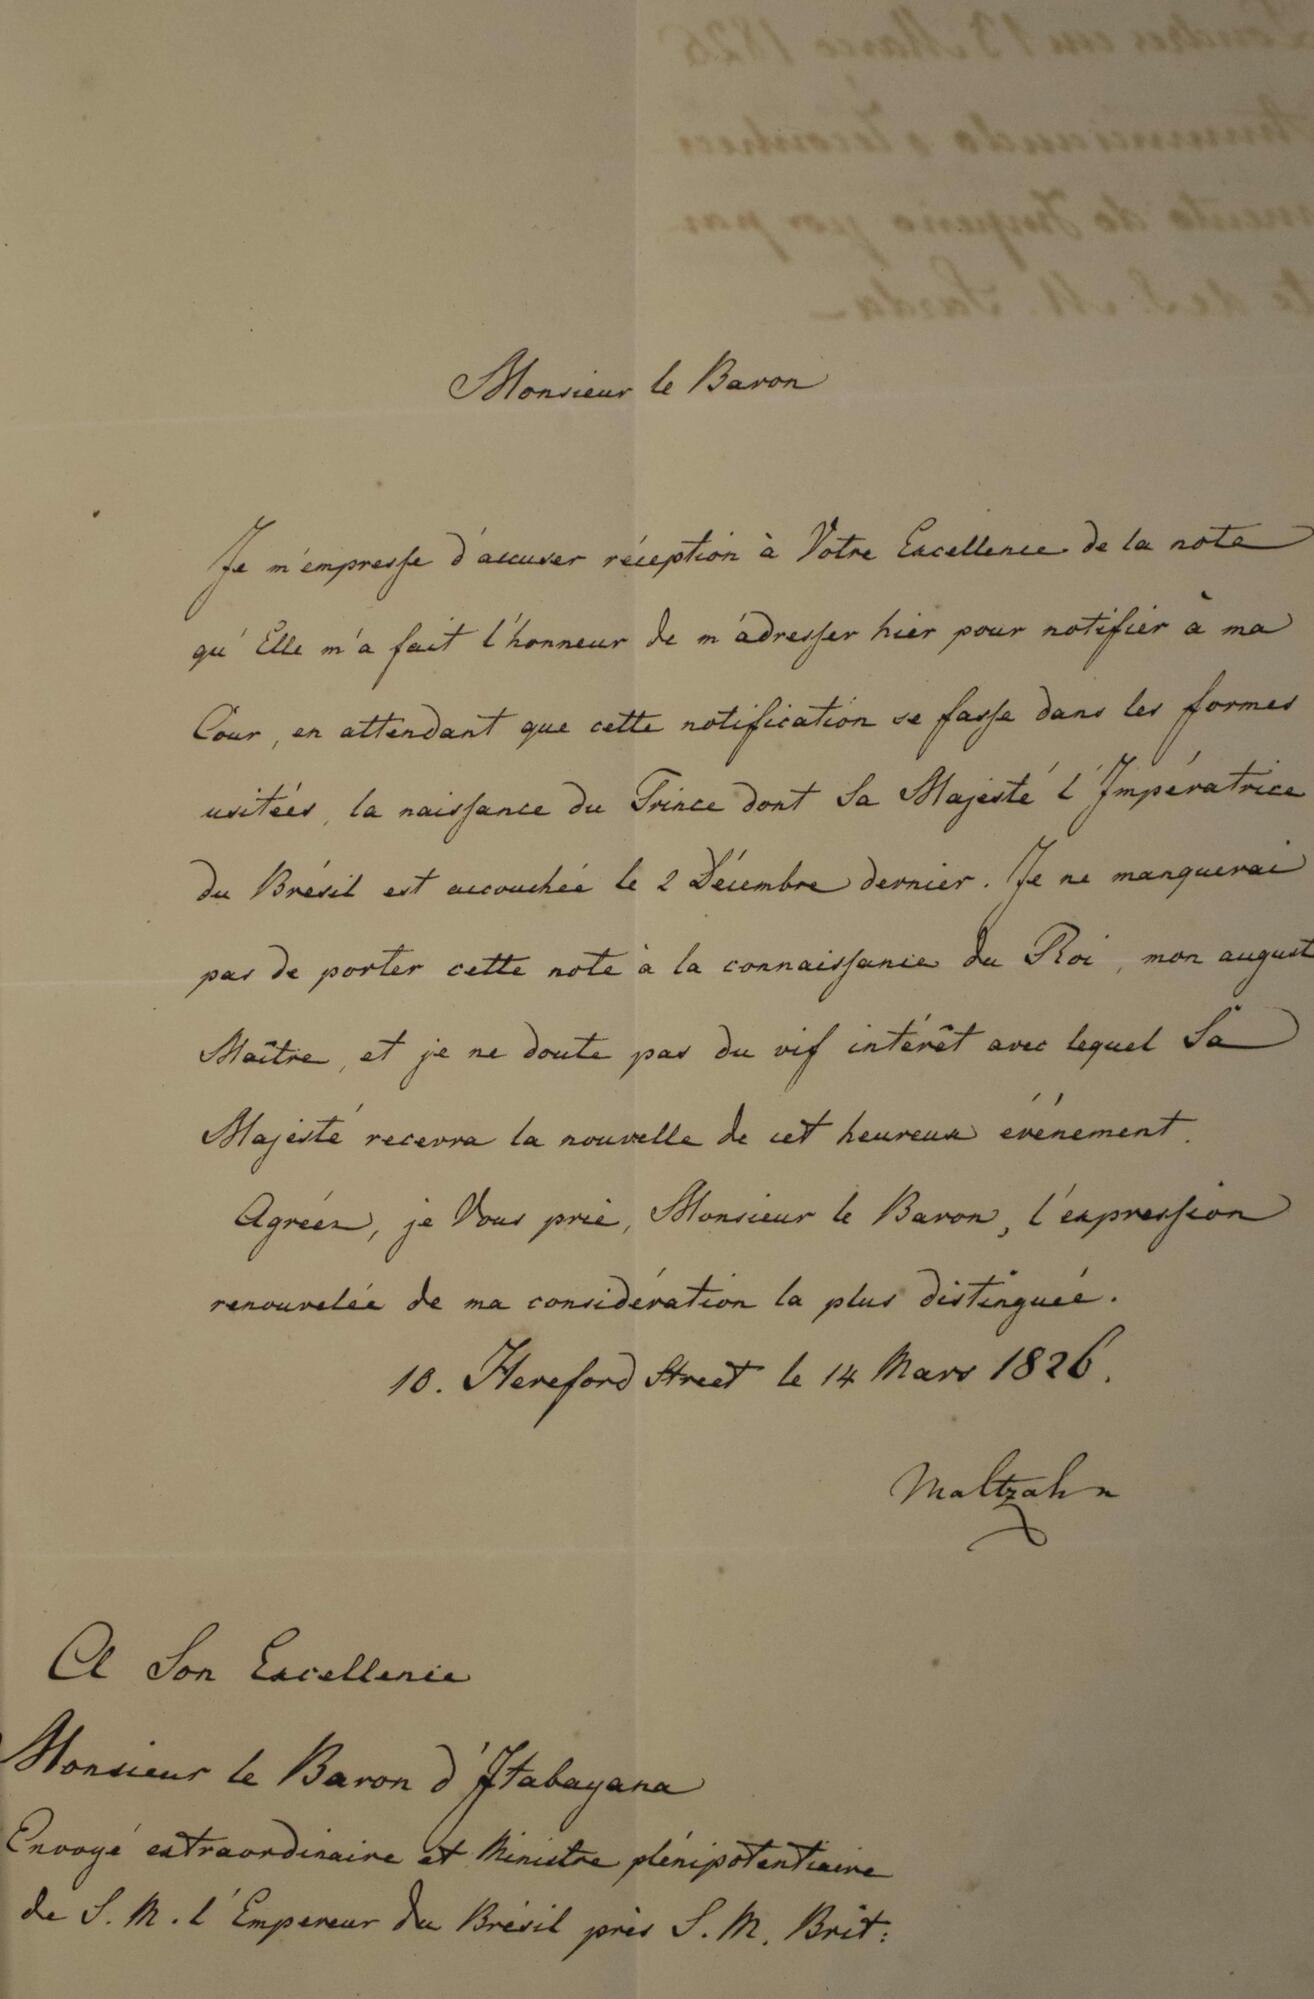 Londres em 13 Março 1826
Annunciando o reconheci
mento do Imperio por par
te de S. M. Sarda
Monsieur le Baron
Je m'empresse d'accuser réception à Votre Excellence de la note
qu'Elle m'a fait l'honneur de m'adresser hier pour notifier à ma
Cour, en attendant que cette notification se fasse dans les formes
usitées, la naissance du Prince dont Sa Majesté l'Impératrice
du Brésil est accouchée le 2 Décembre dernier. Je ne manquerai
pas de porter cette note à la connaissance du Roi, mon august
Maître, et je ne doute pas du vif intérêt avec lequel Sa
Majesté recevra la nouvelle de cet heureux événement.
Agréez, je Vous prie, Monsieur le Baron, l'expression
renouvelée de ma considération la plus distinguée.
10. Hereford Street le 14 Mars 1826.
Maltzahn
A Son Excellence
Monsieur le Baron d'Itabayana
Envoyé extraordinaire et Ministre plénipotentiaire
de S. M. l'Empereur du Brésil près S. M. Brit: